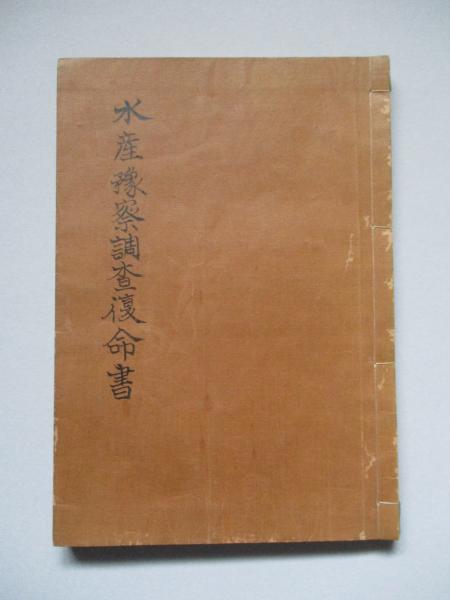 水産豫察調査復命書